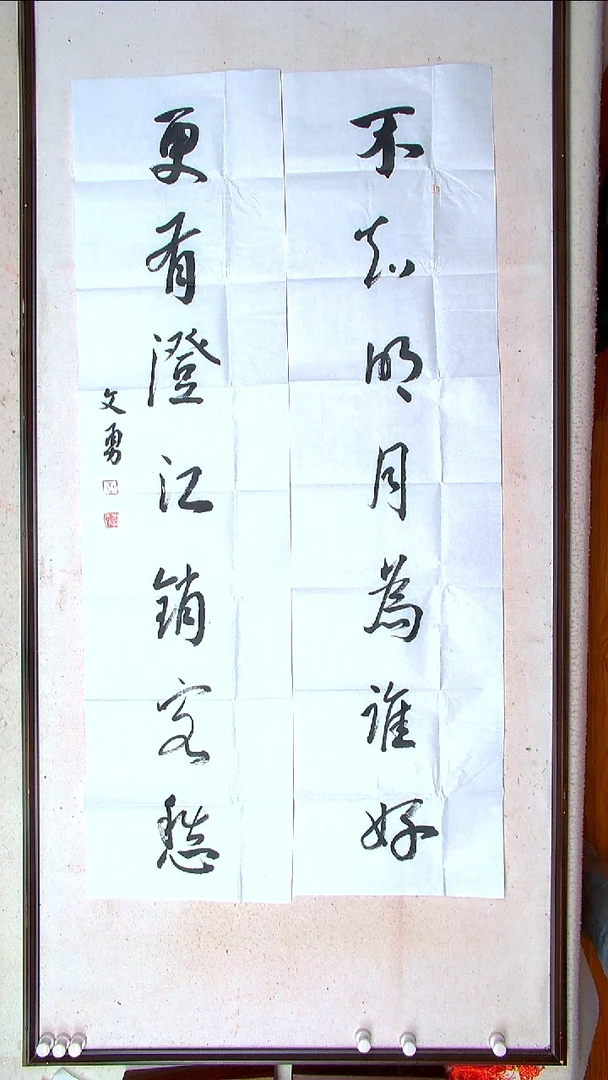 不知明月為誰好
更有澄江銷客愁
文勇